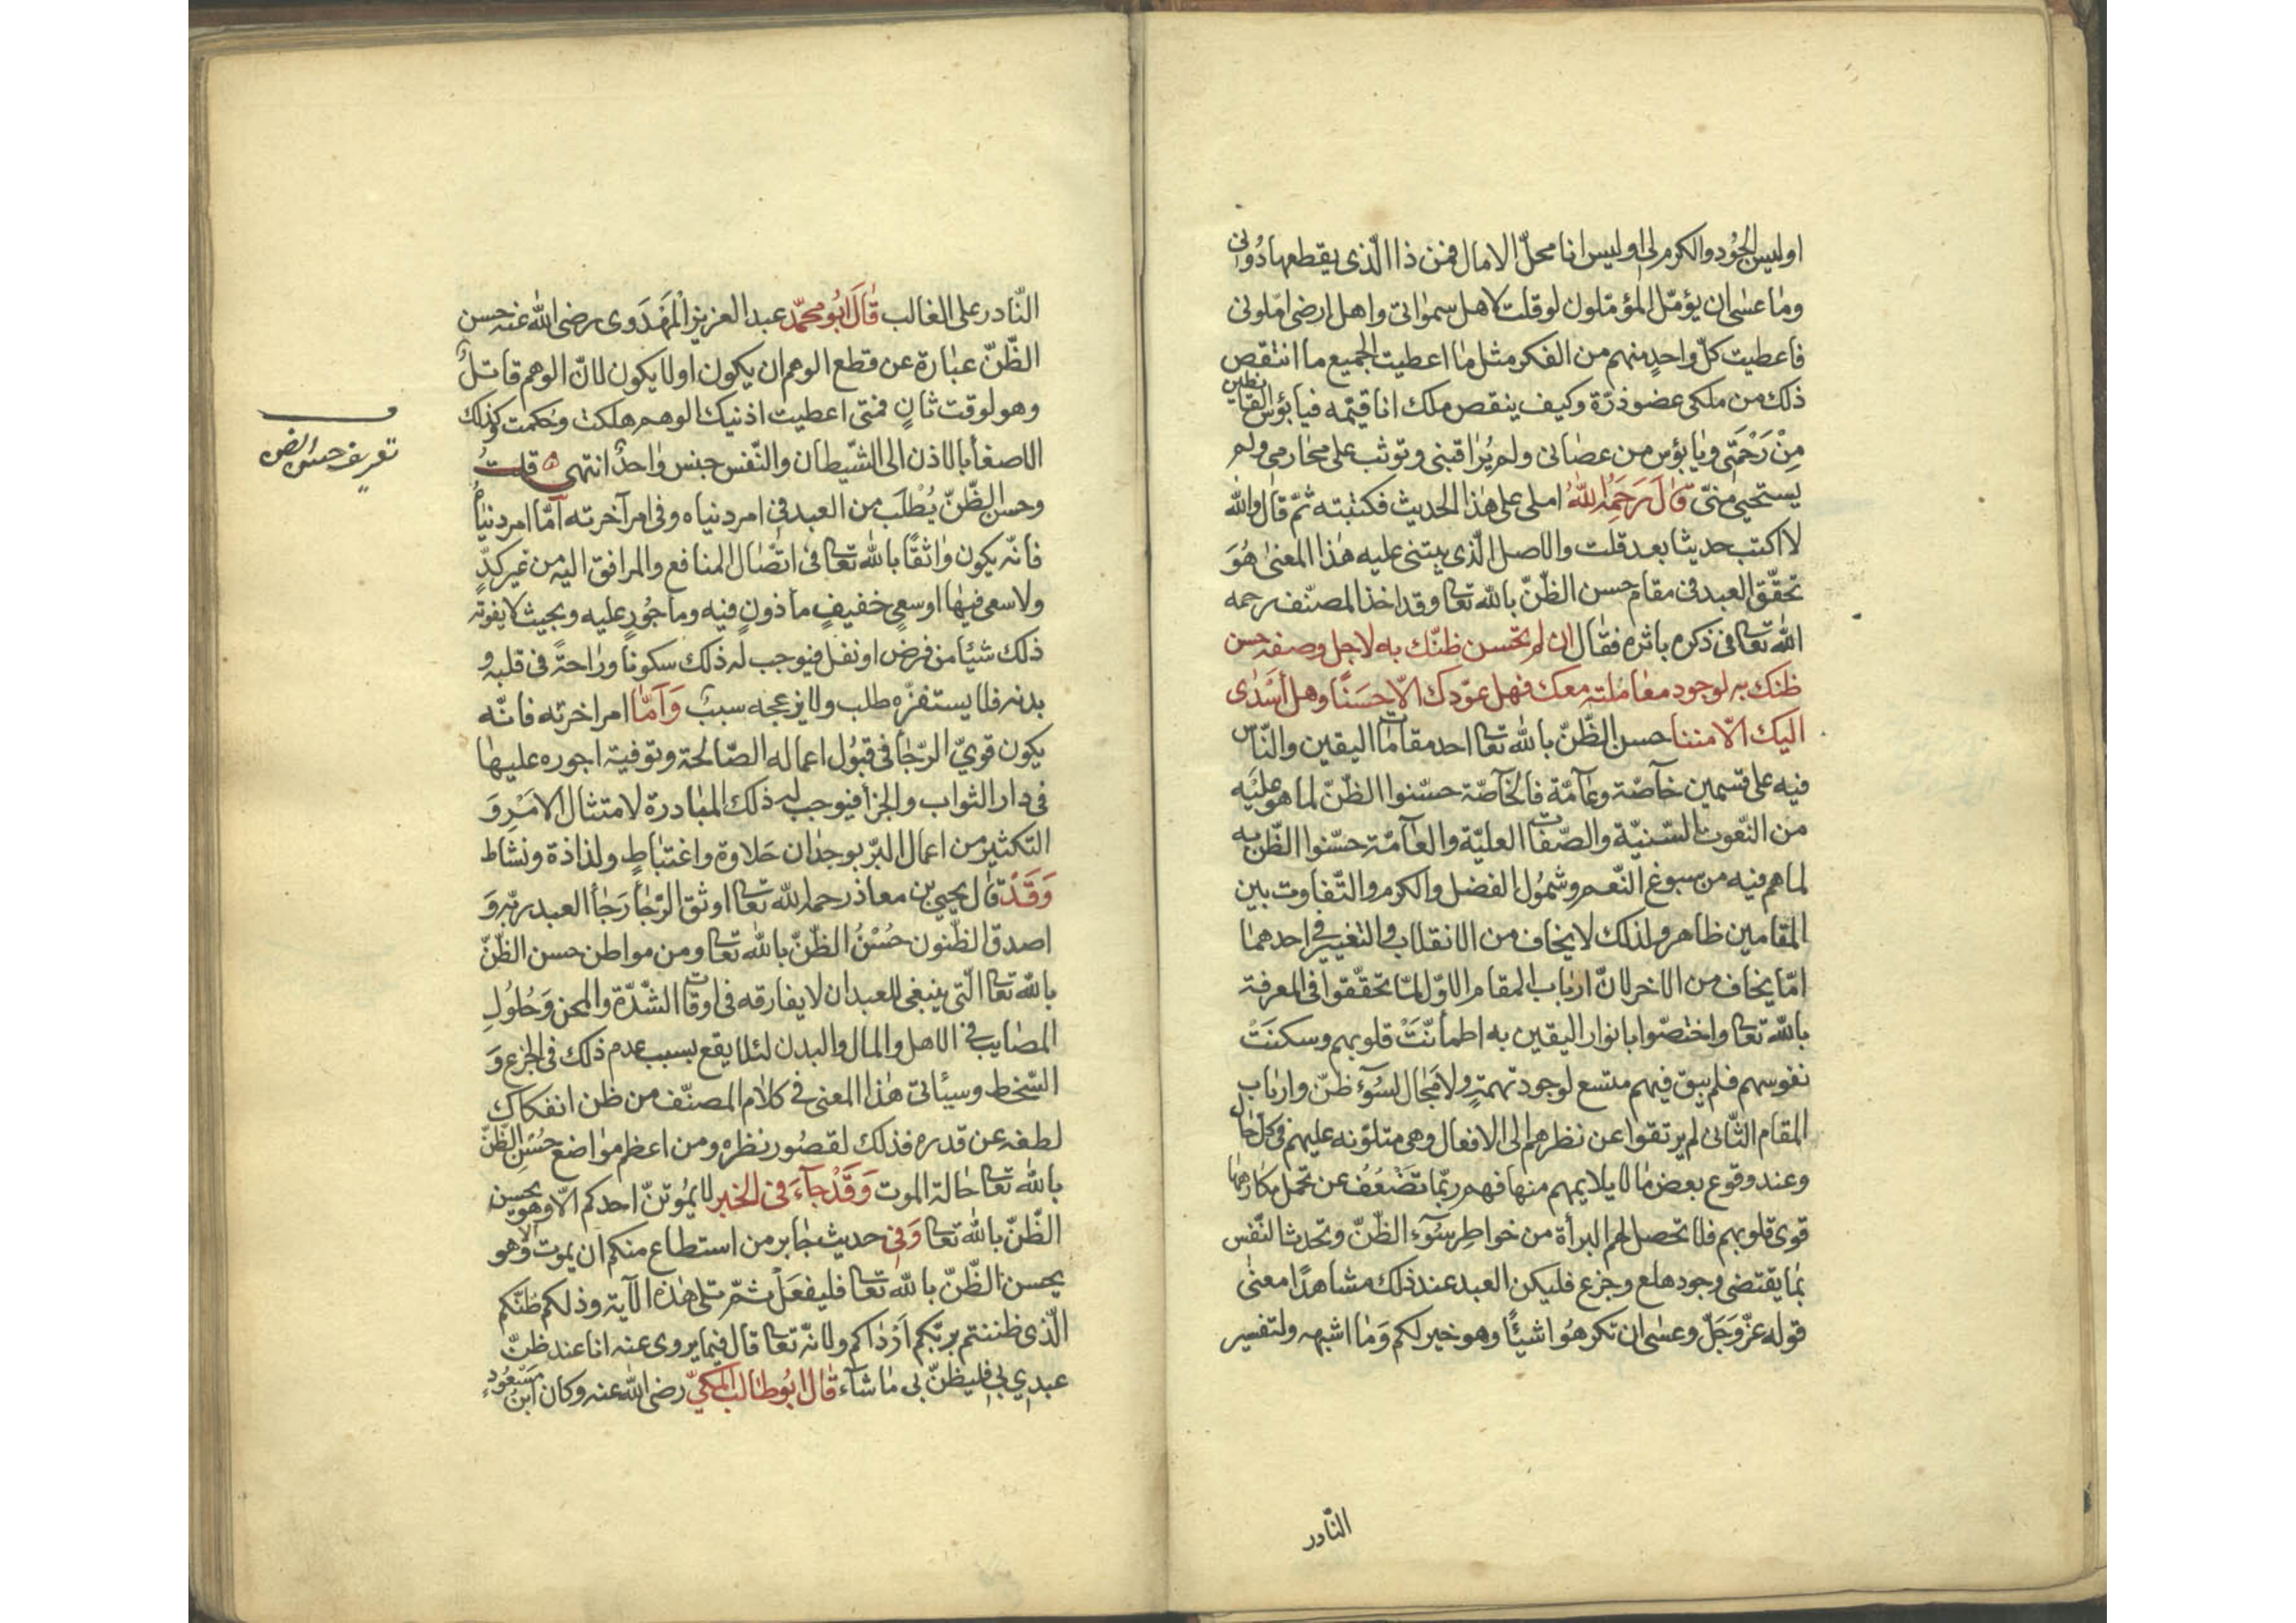 اوليس الجُود والكرم لي اوليس انا محلّ الامال فمن ذا الّذى يقطعها دُونى
ومٰا عسٰى ان يؤمّل المؤمّلون لو قلت لاهل سمواتى واهل ارضى امّلونى
فاعطيت كلّ واحدٍ منهم من الفكر مثل مٰا اعطيت الجميع ما انتقص
ذلك من ملكى عضو ذرّة وكيف ينقص ملك انا قيّمه فيا بؤس القانطين
مِنْ رَحْمَتى ويٰا بؤس من عصٰانى ولم يُراقبنى وتوثب على محٰارمى ولم
يستحيى منىّ قٰالَ رَحَمِهُ اللّٰهُ املى على هٰذا الحديث فكتبته ثمّ قٰال والله
لا اكتب حديثا بعد قلت والاصل الّذى يبتنى عليه هٰذا المعنىٰ هُوَ
تحقّق العبد فى مقام حسن الظّنّ بالله تعالى وقد اخذ المصنّف رحمه
الله تعالى فى ذكره باثره فقٰال ان لم تحسن ظنّك به لاجل وصفه حسن
ظنك به لوجود معٰاملته معك فهل عوّدك الّا حَسَنًا وهل أَسْدٰى
اليك الّا مننا حسن الظّنّ بالله تعالى احد مقامات اليقين والنّاس
فيه على قسمين خآصّة وعٰآمّة فالخآصّة حسّنوا الظنّ لما هو عليَه
من النّعوت السّنيّة والصّفات العليّة والعٰآمّة حسّنوا الظّنّ به
لما هم فيه من سبوغ النّعم وشمُول الفضل والكرم والتّفاوت بين
المقٰامين ظاهر ولذلك لا يخاف من الانقلاب والتغيير فى احدهمٰا
امّا يخاف من الاخر لانّ ارباب المقام الاوّل لمّا تحقّقوا فى المعرفة
بالله تعالى واختصّوا بانوار اليقين به اطمأنّتْ قلوبهم وسكنَتْ
نفوسهم فلم يبق فيهم متسع لوجود تهمةٍ ولا مجٰال لسُوٓء ظنّ وارباب
المقام الثّانى لم يرتقوا عن نظرهم الى الافعال وهى متلوّنه عليهم فى كل حال
وعند وقوع بعض مٰا لا يلايمهم منها فهم ربّما تَضْعُفُ عن تحمّل مكارهها
قوى قلوبهم فلا تحصل لهم البرأة من خواطِر سُوٓء الظّنّ وتحدث النّفس
بمٰا يقتضى وجود هلع وجزع فليكن العبد عند ذلك مشاهدًا معنىٰ
قوله عزّ وَجَلّ وعسٰى ان تكرهُوا شيئًا وهو خير لكم وَمٰا اشبهه ولتفسير
النّادر
النّادر على الغالب قٰالَ ابُو محمّد عبد العزيز المَهْدَوى رضى الله عنه حسن
الظّنّ عبٰارة عن قطع الوهم ان يكون او لا يكون لانّ الوهم قاتلٌ
وهو لوقت ثانٍ فمتى اعطيت اذنيك الوهم هلكت وحكمت وكذلك
الاصغأ بالاذن الى الشّيطان والنّفس جنس وٰاحدٌ انتهى قلتُ
وحسن الظّنّ يُطْلَب من العبد فى امر دنياه وفى امر آخرته اَمّا امر دنياهُ
فانّه يكون وٰاثقًا بالله تعالى فى اتّصٰال المنافع والمرافق اليه من غير كدٍّ
ولا سعى فيهٰا او سعىٍ خفيفٍ مأذونٍ فيه ومأجُورٍ عليه وبحيث لا يفوته
ذلك شيئا من فرض او نفل فيوجب له ذلك سكونا ورٰاحةً فى قلبه و
بدنه فلا يستفزّه طلب ولا يزعجه سببٌ وَاَمّٰا امر اخرته فانّه
يكون قوىّ الرّجٰا فى قبُول اعماله الصّالحة وتوفية اجوره عليهٰا
فى دار الثواب والجزأ فيوجب له ذلك المبٰادرة لامتثال الامْرِ وَ
التكثير من اعمال البرّ بوجدٰان حَلاوة واغتبٰاطٍ ولذاذة ونشاط
وَقَدْ قٰال يحيى بن معاذ رحمه الله تعالى اوثق الرّجٰأ رَجٰأ العبد ربّه وَ
اصدق الظّنون حُسْنُ الظّنّ بالله تعالى ومن مواطن حسن الظّنّ
بالله تعالى الّتى ينبغى للعبد ان لا يفارقه فى اوقات الشّدّة والمحن وَحُلُولِ
المصٰايب فى الاهل والمال والبدن لئلا يقع بسبب عدم ذلك فى الجزع وَ
السّخط وسيأتى هٰذا المعنى فى كلام المصنّف من ظن انفكاك
لطفه عن قدره فذلك لقصُور نظره ومن اعظم موٰاضع حُسْنِ الظّنّ
بالله تعالى حٰالة الموت وَقَدْ جآءَ فى الخبر لا يمُوتنّ احدكم الّا وهو يحسن
الظّنّ بالله تعالى وَفى حديث جٰابر من استطاع منكم ان يموت الّا وهو
يحسن الظّنّ بالله تعالى فليفعَلْ ثمّ تلى هٰذه الآية وذلكم ظنّكم
الّذى ظننتم بربّكم اَرْدٰاكم ولانّه تعالى قال فيما يروى عنه انا عند ظنّ
عبدى بى فليظنّ بى مٰا شآء قٰال ابُو طالب المكىّ رضى الله عنه وكان ابنُ مسْعُودٍ
تعريف حسن الظن